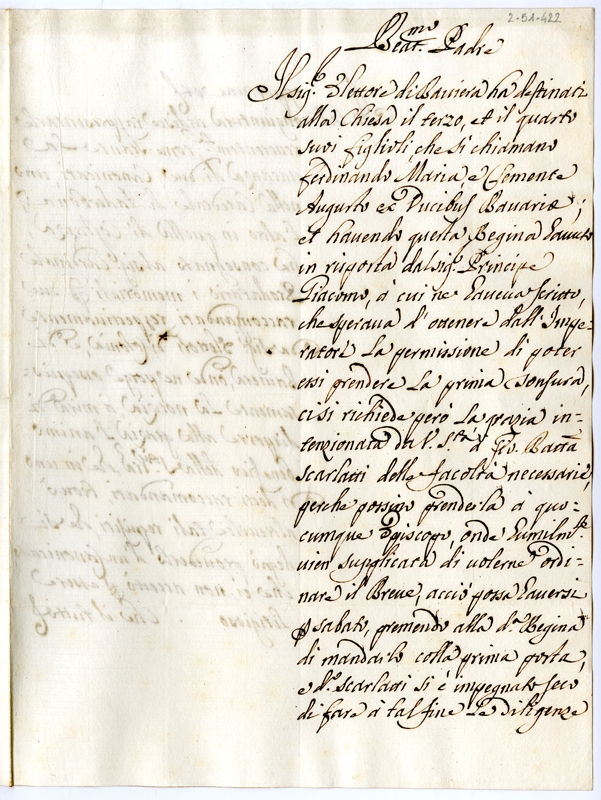 2-51-422
Beat.mo Padre
Il sig.r Elettore di Baviera ha destinati
alla Chiesa il terzo, et il quarto
suoi figlioli, che si chiamano
ferdinando Maria, e Clemente
Augusto ex Ducibus Bavariæ;
et havendo questa Regina havuto
in risposta dal sig.r Principe
Giacomo, à cui ne haveva scritto,
che sperava d'ottenere dall'Impe-
ratore la permissione di poter
essi prendere la prima Tonsura,
ci si richiede però la grazia in-
tenzionata da V. S.tà à Gio. Batta
scarlatti delle facoltà necessarie,
perche possino prenderla à quo-
cumque Episcopo, onde humilm.te
vien supplicata di volerne ordi-
nare il Breve, acciò possa haversi
p sabato, premendo alla d.a Regina
di mandarlo colla prima posta,
e d.o scarlatti si è impegnato seco
di fare à tal fine le diligenze